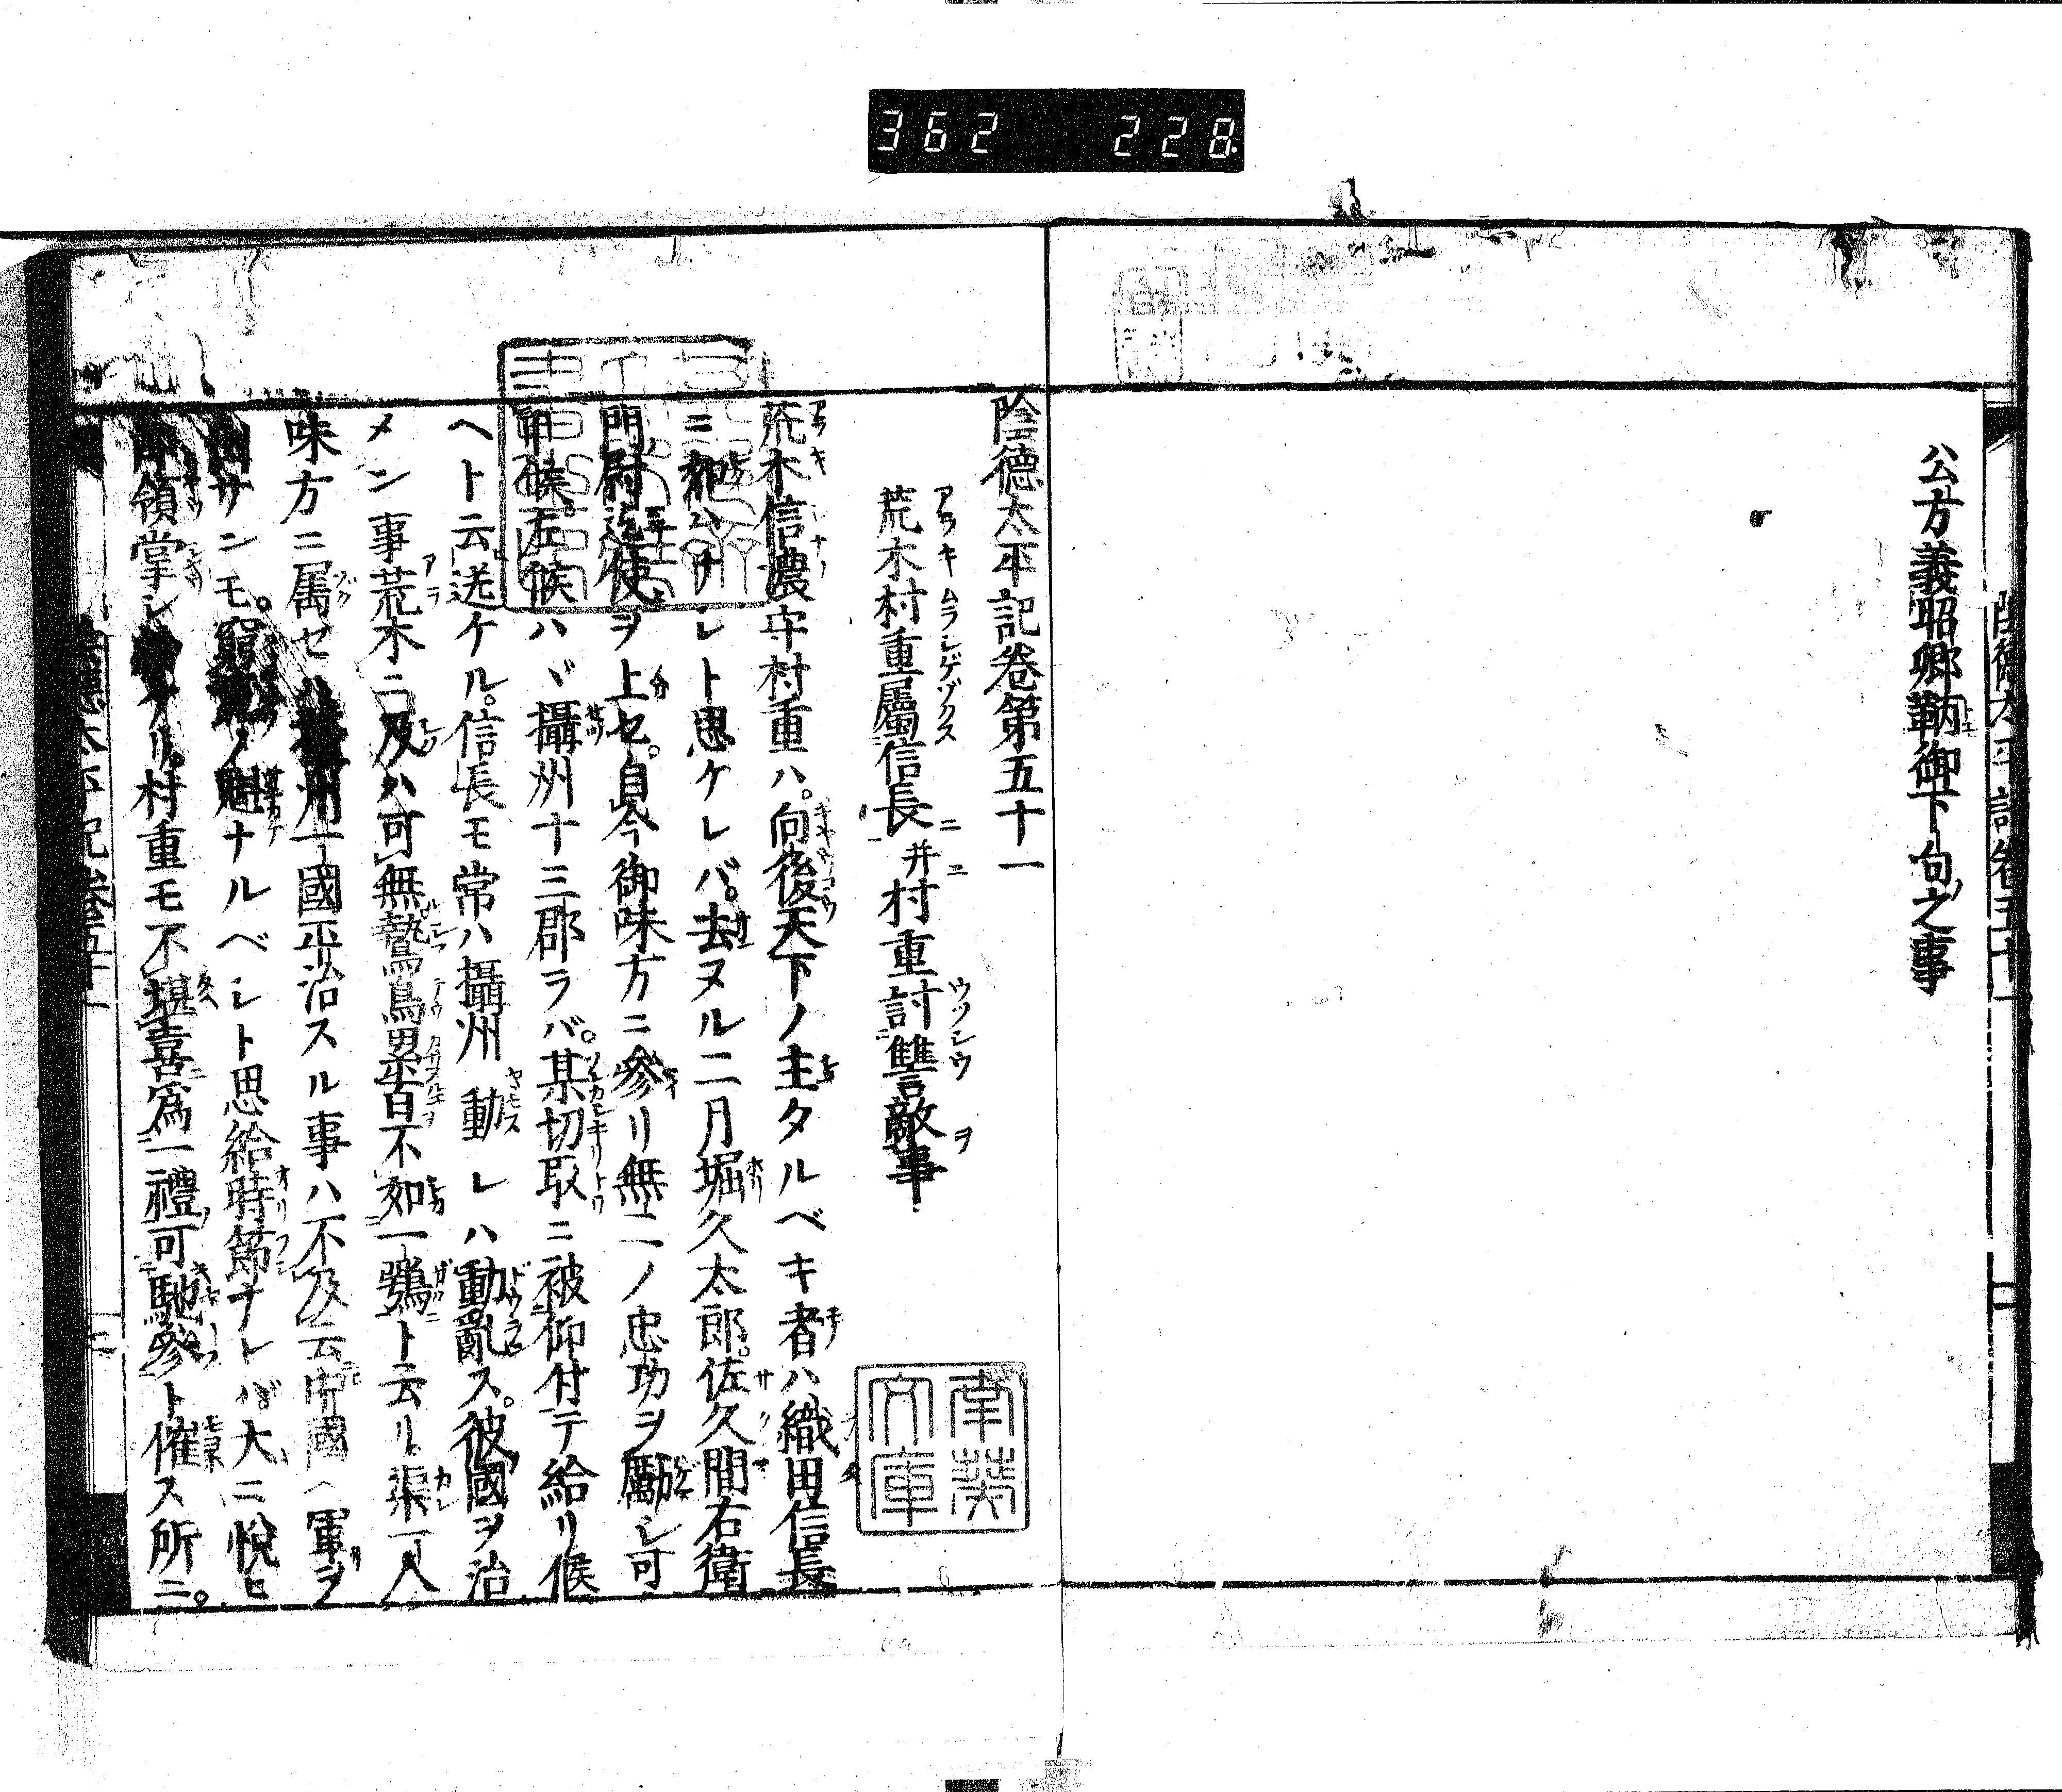 362 228
公方義昭卿鞆御下向之事
陰德太平記卷五十一
陰德太平記卷第五十一
荒木村重屬信長并村重討讐敵事
荒木信濃守村重ハ。向後天下ノ主タルベキ者ハ織田信長
ニ ナレト思ケレバ。去ヌル二月堀久太郎。佐久間右衛
門尉迄使ヲ上セ。自今御味方ニ參リ無二ノ忠功ヲ勵シ可
申候。左候ハヾ攝州十三郡ラバ。某切取ニ被仰付テ給リ候
ヘト云送ケル。信長モ常ハ攝州動レハ動亂ス。彼國ヲ治
メン事荒木ニ及ハ可無鷙鳥累百不如一鶚ト云リ。渠一人
味方ニ屬セハ攝州一國平治スル事ハ不及云中國ヘ軍ヲ
出サンモ。 ノ魁ナルベシト思給時節ナレバ大ニ悅ヒ
即領掌シ ナリ。村重モ不堪喜爲一禮可馳參ト催ス所ニ。
陰德太平記卷五十一
南葵文庫